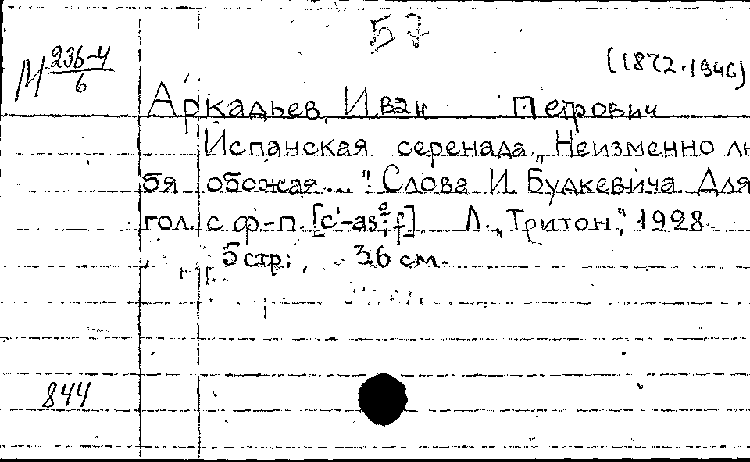 57
М 236-4/6
(1872-1946)
Аркадьев, Иван Петрович
Испанская серенада „Неизменно лю
бя обожая..." Слова И. Будкевича. Для
гол. с ф-п. [c'-as²; f] Л. „Тритон," 1928.
5 стр; 36 см.
844